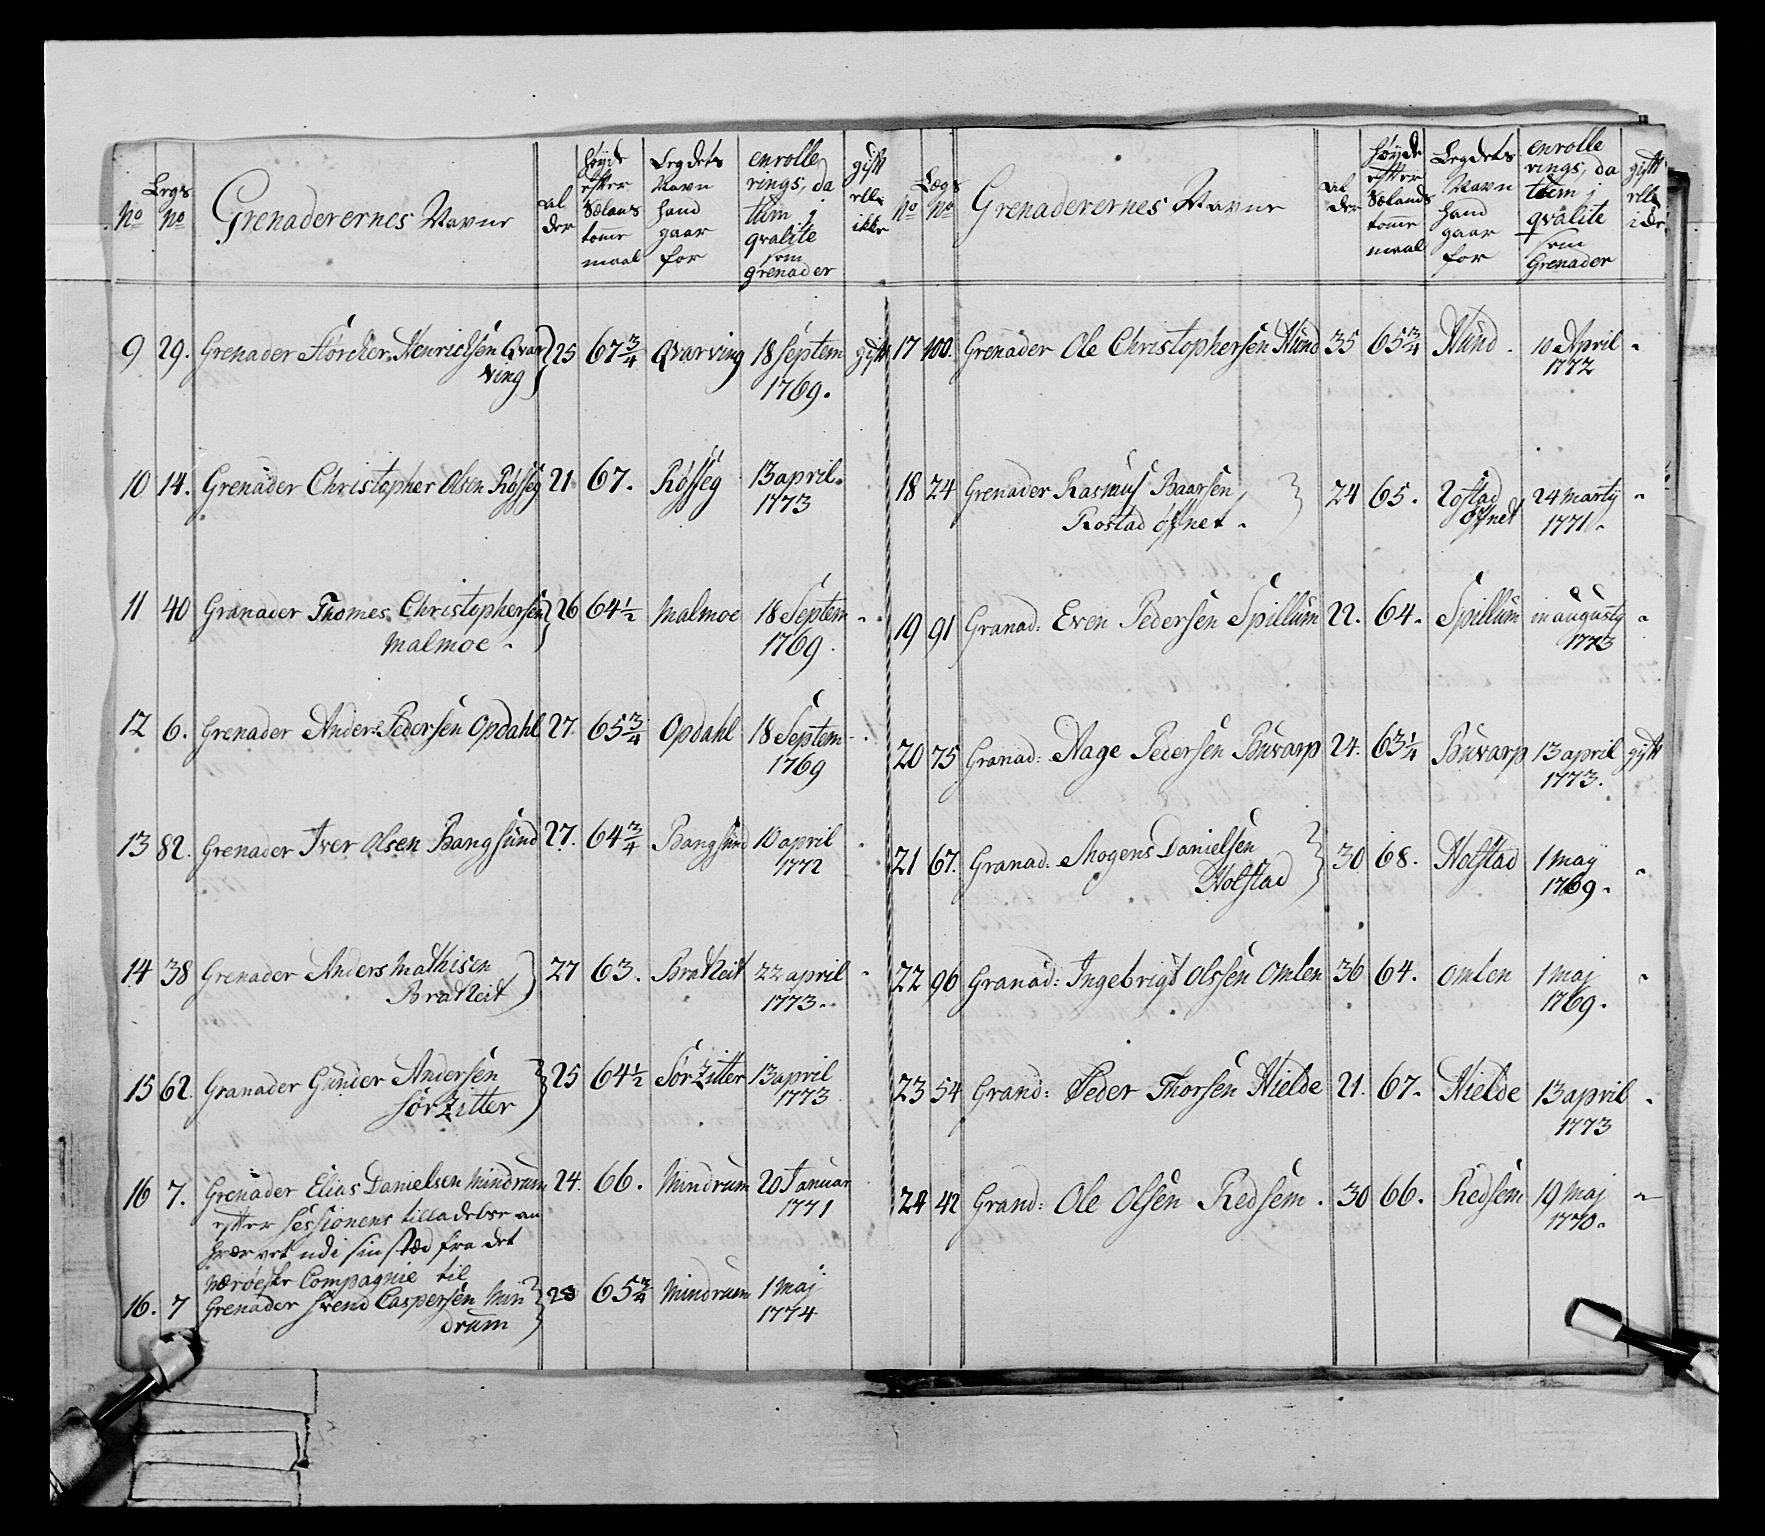 No
Legs No
Grenaderernes Navne
al der
høyde efter Sælans tomme maal
Legdets Navn hand gaar for
enrolle rings, da tum i qvalite som grenader
gift elle ikke
9 29. Grenader Störcher Henrichsen Qvar 25 67 3/4 Qvarving 18 Septem gift
ving 1769.
10 14. Grenader Christopher Olsen Røsseg 21 67. Røsseg 13 april
1773
11 40 Granader Thomes Christophersen 26 64 1/2 Malmoe 18 Septem -
Malmoe - 1769.
12 6. Grenader Anders Pedersen Opdahl 27 65 3/4 Opdahl 18 Septem -
1769
13 82. Grenader Iver Olsen Bangsund 27. 64 3/4 Bangsund 10 april
1772
14 38 Grenader Anders Mathisen 27 63. Bratreit 22 april -
Bratreit 1773.
15 62. Granader Gunder Andersen 25 64 1/2 Sörzitter 13 april
Sörzitter 1773
16 7. Grenader Elias Danielsen Mindrum 24. 66. Mindrum 20 Januar
efter Sessionens tilladelse an 1771
hværvet udi sin stæd fra det
Nærøeske Compagnie til
16. 7 Grenader Svend Caspersen Min 28 65 3/4 Mindrum 1 Maj
drum 1774
No
Lægs No
Grenaderernes Navne
al der
høyde efter Sælands tomme maal
Legdets Navn hand gaar for
enrolle rings, da tum i qvalite som Grenader
gift elle ike
17 100. Grenader Ole Christophersen Hund 35 65 3/4 Hund. 10 April -
1772
18 24 Grenader Rasmus Baarsen 24 65. Rostad 24 Marty -
Rostad öfnet - öfnet 1771 -
19 91 Granad: Even Pedersen Spillum 22. 64. Spillum in augusty -
1773
20 75 Granad: Aage Pedersen Buvarp 24. 63 1/4 Buvarp 13 april gift
1773.
21 67. Granad: Mogens Danielsen 30 68. Holstad 1 May -
Holstad 1769.
22 96 Granad: Ingebrigt Olsen Omlen 36 64. Omlen 1 maj -
1769.
23 54 Grand: Peder Thorsen Hielde 21. 67. Hielde 13 april -
1773
24 42 Grand: Ole Olsen Redsem. 30 66. Redsem 19 Maj -
1770.